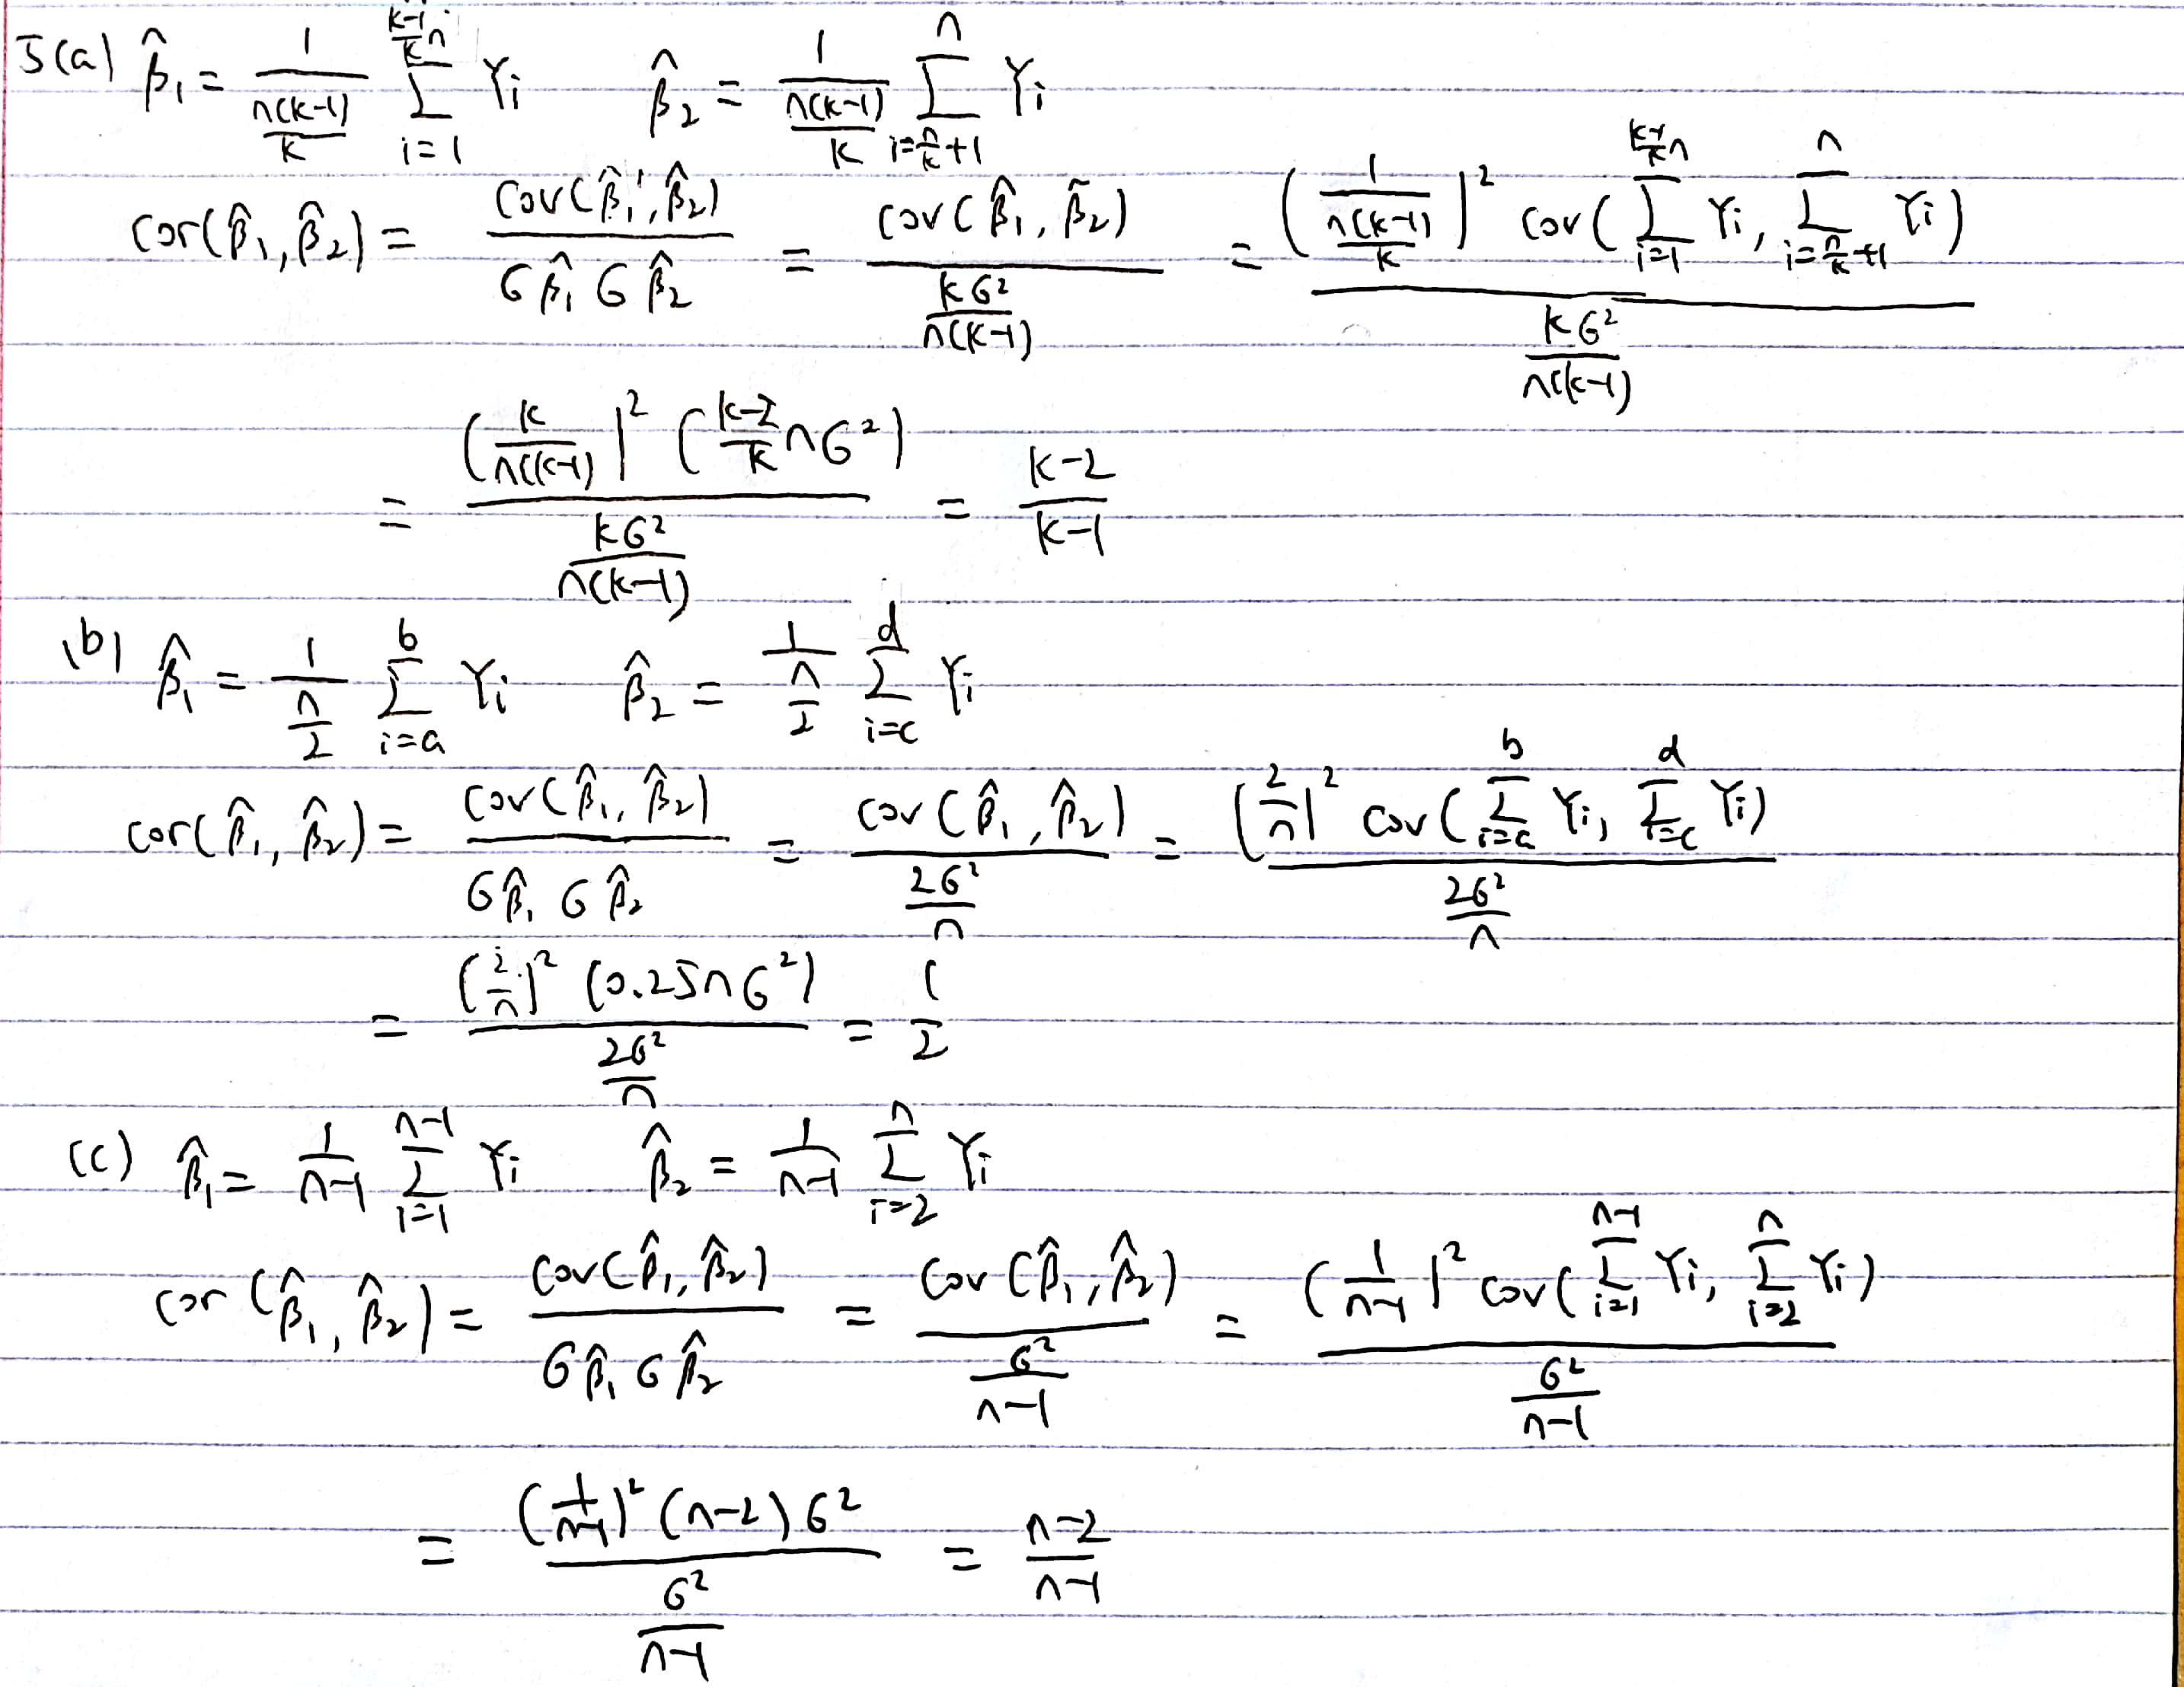 5(a) β̂₁ = 1/(n(k-1)/k) Σ_{i=1}^{(k-1)/k n} Yᵢ   β̂₂ = 1/(n(k-1)/k) Σ_{i=n/k+1}^{n} Yᵢ
cor(β̂₁, β̂₂) = cov(β̂₁, β̂₂)/(σβ̂₁ σβ̂₂) = cov(β̂₁, β̂₂)/(kσ²/(n(k-1))) = (1/(n(k-1)/k))² cov(Σ_{i=1}^{(k-1)/k n} Yᵢ, Σ_{i=n/k+1}^{n} Yᵢ)/(kσ²/(n(k-1)))
= (k/(n(k-1)))² ((k-2)/k nσ²)/(kσ²/(n(k-1))) = (k-2)/(k-1)
(b) β̂₁ = 1/(n/2) Σ_{i=a}^{b} Yᵢ   β̂₂ = 1/(n/2) Σ_{i=c}^{d} Yᵢ
cor(β̂₁, β̂₂) = cov(β̂₁, β̂₂)/(σβ̂₁ σβ̂₂) = cov(β̂₁, β̂₂)/(2σ²/n) = (2/n)² cov(Σ_{i=a}^{b} Yᵢ, Σ_{i=c}^{d} Yᵢ)/(2σ²/n)
= (2/n)² (0.25nσ²)/(2σ²/n) = 1/2
(c) β̂₁ = 1/(n-1) Σ_{i=1}^{n-1} Yᵢ   β̂₂ = 1/(n-1) Σ_{i=2}^{n} Yᵢ
cor(β̂₁, β̂₂) = cov(β̂₁, β̂₂)/(σβ̂₁ σβ̂₂) = cov(β̂₁, β̂₂)/(σ²/(n-1)) = (1/(n-1))² cov(Σ_{i=1}^{n-1} Yᵢ, Σ_{i=2}^{n} Yᵢ)/(σ²/(n-1))
= (1/(n-1))² (n-2)σ²/(σ²/(n-1)) = (n-2)/(n-1)